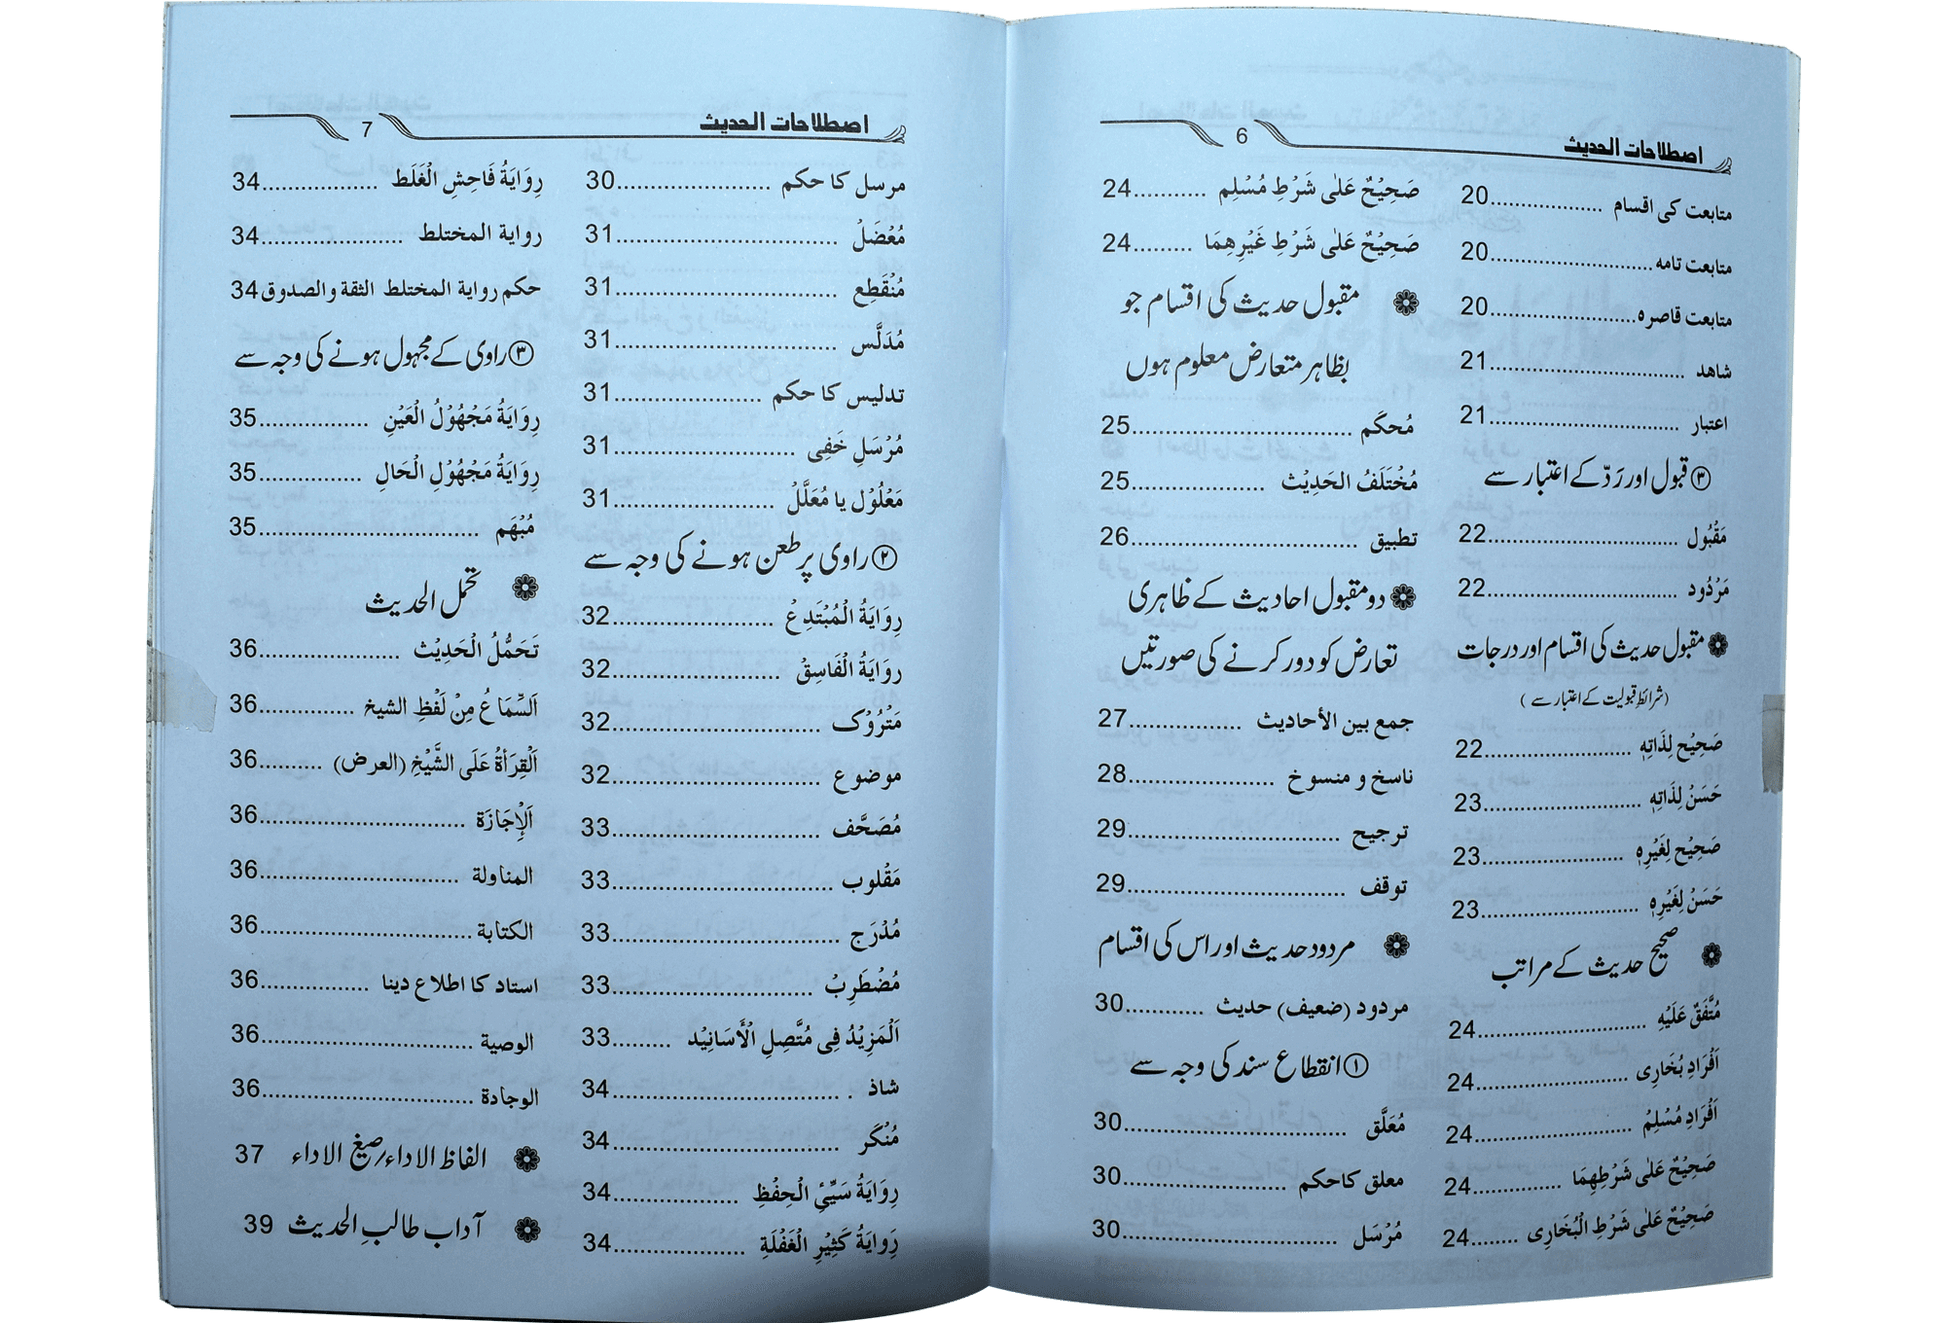 اصطلاحات الحديث
6
متابعت کی اقسام ................20
متابعت تامہ .......................20
متابعت قاصرہ .....................20
شاهد ............................21
اعتبار ...........................21
③ قبول اور رَدّ کے اعتبار سے
مَقْبُول ...........................22
مَرْدُود ...........................22
مقبول حدیث کی اقسام اور درجات
(شرائطِ قبولیت کے اعتبار سے)
صَحِيْح لِذَاتِهٖ .....................22
حَسَنْ لِذَاتِهٖ .......................23
صَحِيْح لِغَيْرِهٖ ....................23
حَسَنْ لِغَيْرِهٖ ......................23
صحیح حدیث کے مراتب
مُتَّفَقٌ عَلَيْهِ ........................24
اَفْرَادِ بُخَارِی ......................24
اَفْرَادِ مُسْلِمْ .......................24
صَحِيْحٌ عَلٰى شَرْطِهِمَا .............24
صَحِيْحٌ عَلٰى شَرْطِ الْبُخَارِی .......24
صَحِيْحٌ عَلٰى شَرْطِ مُسْلِم ..........24
صَحِيْحٌ عَلٰى شَرْطِ غَيْرِهِمَا .........24
مقبول حدیث کی اقسام جو
بظاہر متعارض معلوم ہوں
مُحکَم ............................25
مُخْتَلَفُ الحَدِيْث ..................25
تطبیق ............................26
دو مقبول احادیث کے ظاہری
تعارض کو دور کرنے کی صورتیں
جمع بين الأحاديث ................27
ناسخ و منسوخ ....................28
ترجیح ............................29
توقف ............................29
مردود حدیث اور اس کی اقسام
مردود (ضعیف) حدیث ............30
① انقطاع سند کی وجہ سے
مُعَلَّق ............................30
معلق کاحکم ......................30
مُرْسَل ...........................30
اصطلاحات الحديث
7
مرسل کا حکم ....................30
مُعْضَلْ ...........................31
مُنْقَطِع ...........................31
مُدَلَّس ...........................31
تدلیس کا حکم ....................31
مُرْسَلِ خَفِی .......................31
مَعْلُوْل یا مُعَلَّلْ ....................31
② راوی پر طعن ہونے کی وجہ سے
رِوَايَةُ الْمُبْتَدِعْ ....................32
رِوَايَةُ الْفَاسِقْ .....................32
مَتْرُوْک ..........................32
موضوع ..........................32
مُصَحَّف .........................33
مَقْلوب ...........................33
مُدْرَج ............................33
مُضْطَرِبْ ........................33
اَلْمَزِيْدُ فِی مُتَّصِلِ الْأَسَانِيْد ........33
شاذ .............................34
مُنْكَر ............................34
رِوَايَةُ سَيِّئِ الْحِفْظِ ................34
رِوَايَةُ كَثِيْرِ الْغَفْلَةِ ................34
رِوَايَةُ فَاحِشِ الْغَلَط ...............34
رواية المختلط ...................34
حكم رواية المختلط الثقة والصدوق 34
③ راوی کے مجہول ہونے کی وجہ سے
رِوَايَةُ مَجْهُوْلُ الْعَيْنِ ..............35
رِوَايَةُ مَجْهُوْلِ الْحَالِ .............35
مُبْهَم ............................35
تحمل الحدیث
تَحَمُّلُ الْحَدِيْث ....................36
اَلسَّمَاعُ مِنْ لَفْظِ الشيخ ............36
اَلْقِرَأةُ عَلَى الشَّيْخِ (العرض) .......36
اَلْإِجَازَة .........................36
المناولة .........................36
الكتابة ..........................36
استاد کا اطلاع دینا ................36
الوصية ..........................36
الوجادة ..........................36
الفاظ الاداء/صیغ الاداء 37
آداب طالبِ الحدیث 39